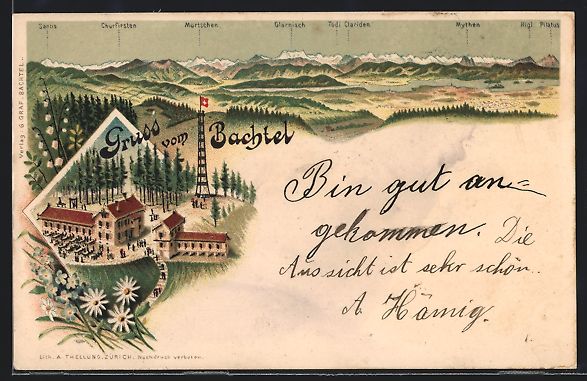 Säntis Churfirsten Mürtschen Glärnisch Tödi Clariden Mythen Rigi Pilatus
Verlag G. GRAF BACHTEL.
Gruss vom Bachtel
Bin gut an=
gekommen. Die
Aussicht ist sehr schön..
A. Hämig.
Lith. A. THELLUNG, ZÜRICH. Nachdruck verboten.